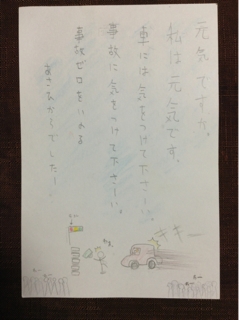 元気ですか。
私は元気です。
車には気をつけて下さーい。
事故に気をつけて下さーい。
事故ゼロをいのる
キキー